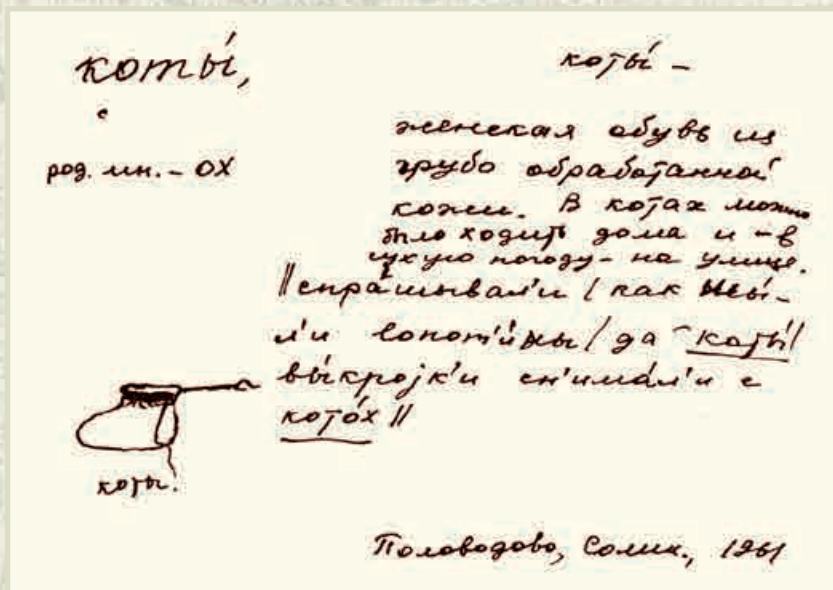 коты́,
род. мн. – ОХ
коты́ –
женская обувь из
грубо обработанной
кожи. В котах можно
было ходить дома и – в
сухую погоду – на улице.
// спра́шывал'и / как шы́-
л'и лопот'и́ны / да коты́ /
вы́кројк'и сн'има́л'и с
кото́х //
коты.
Половодово, Солик., 1961